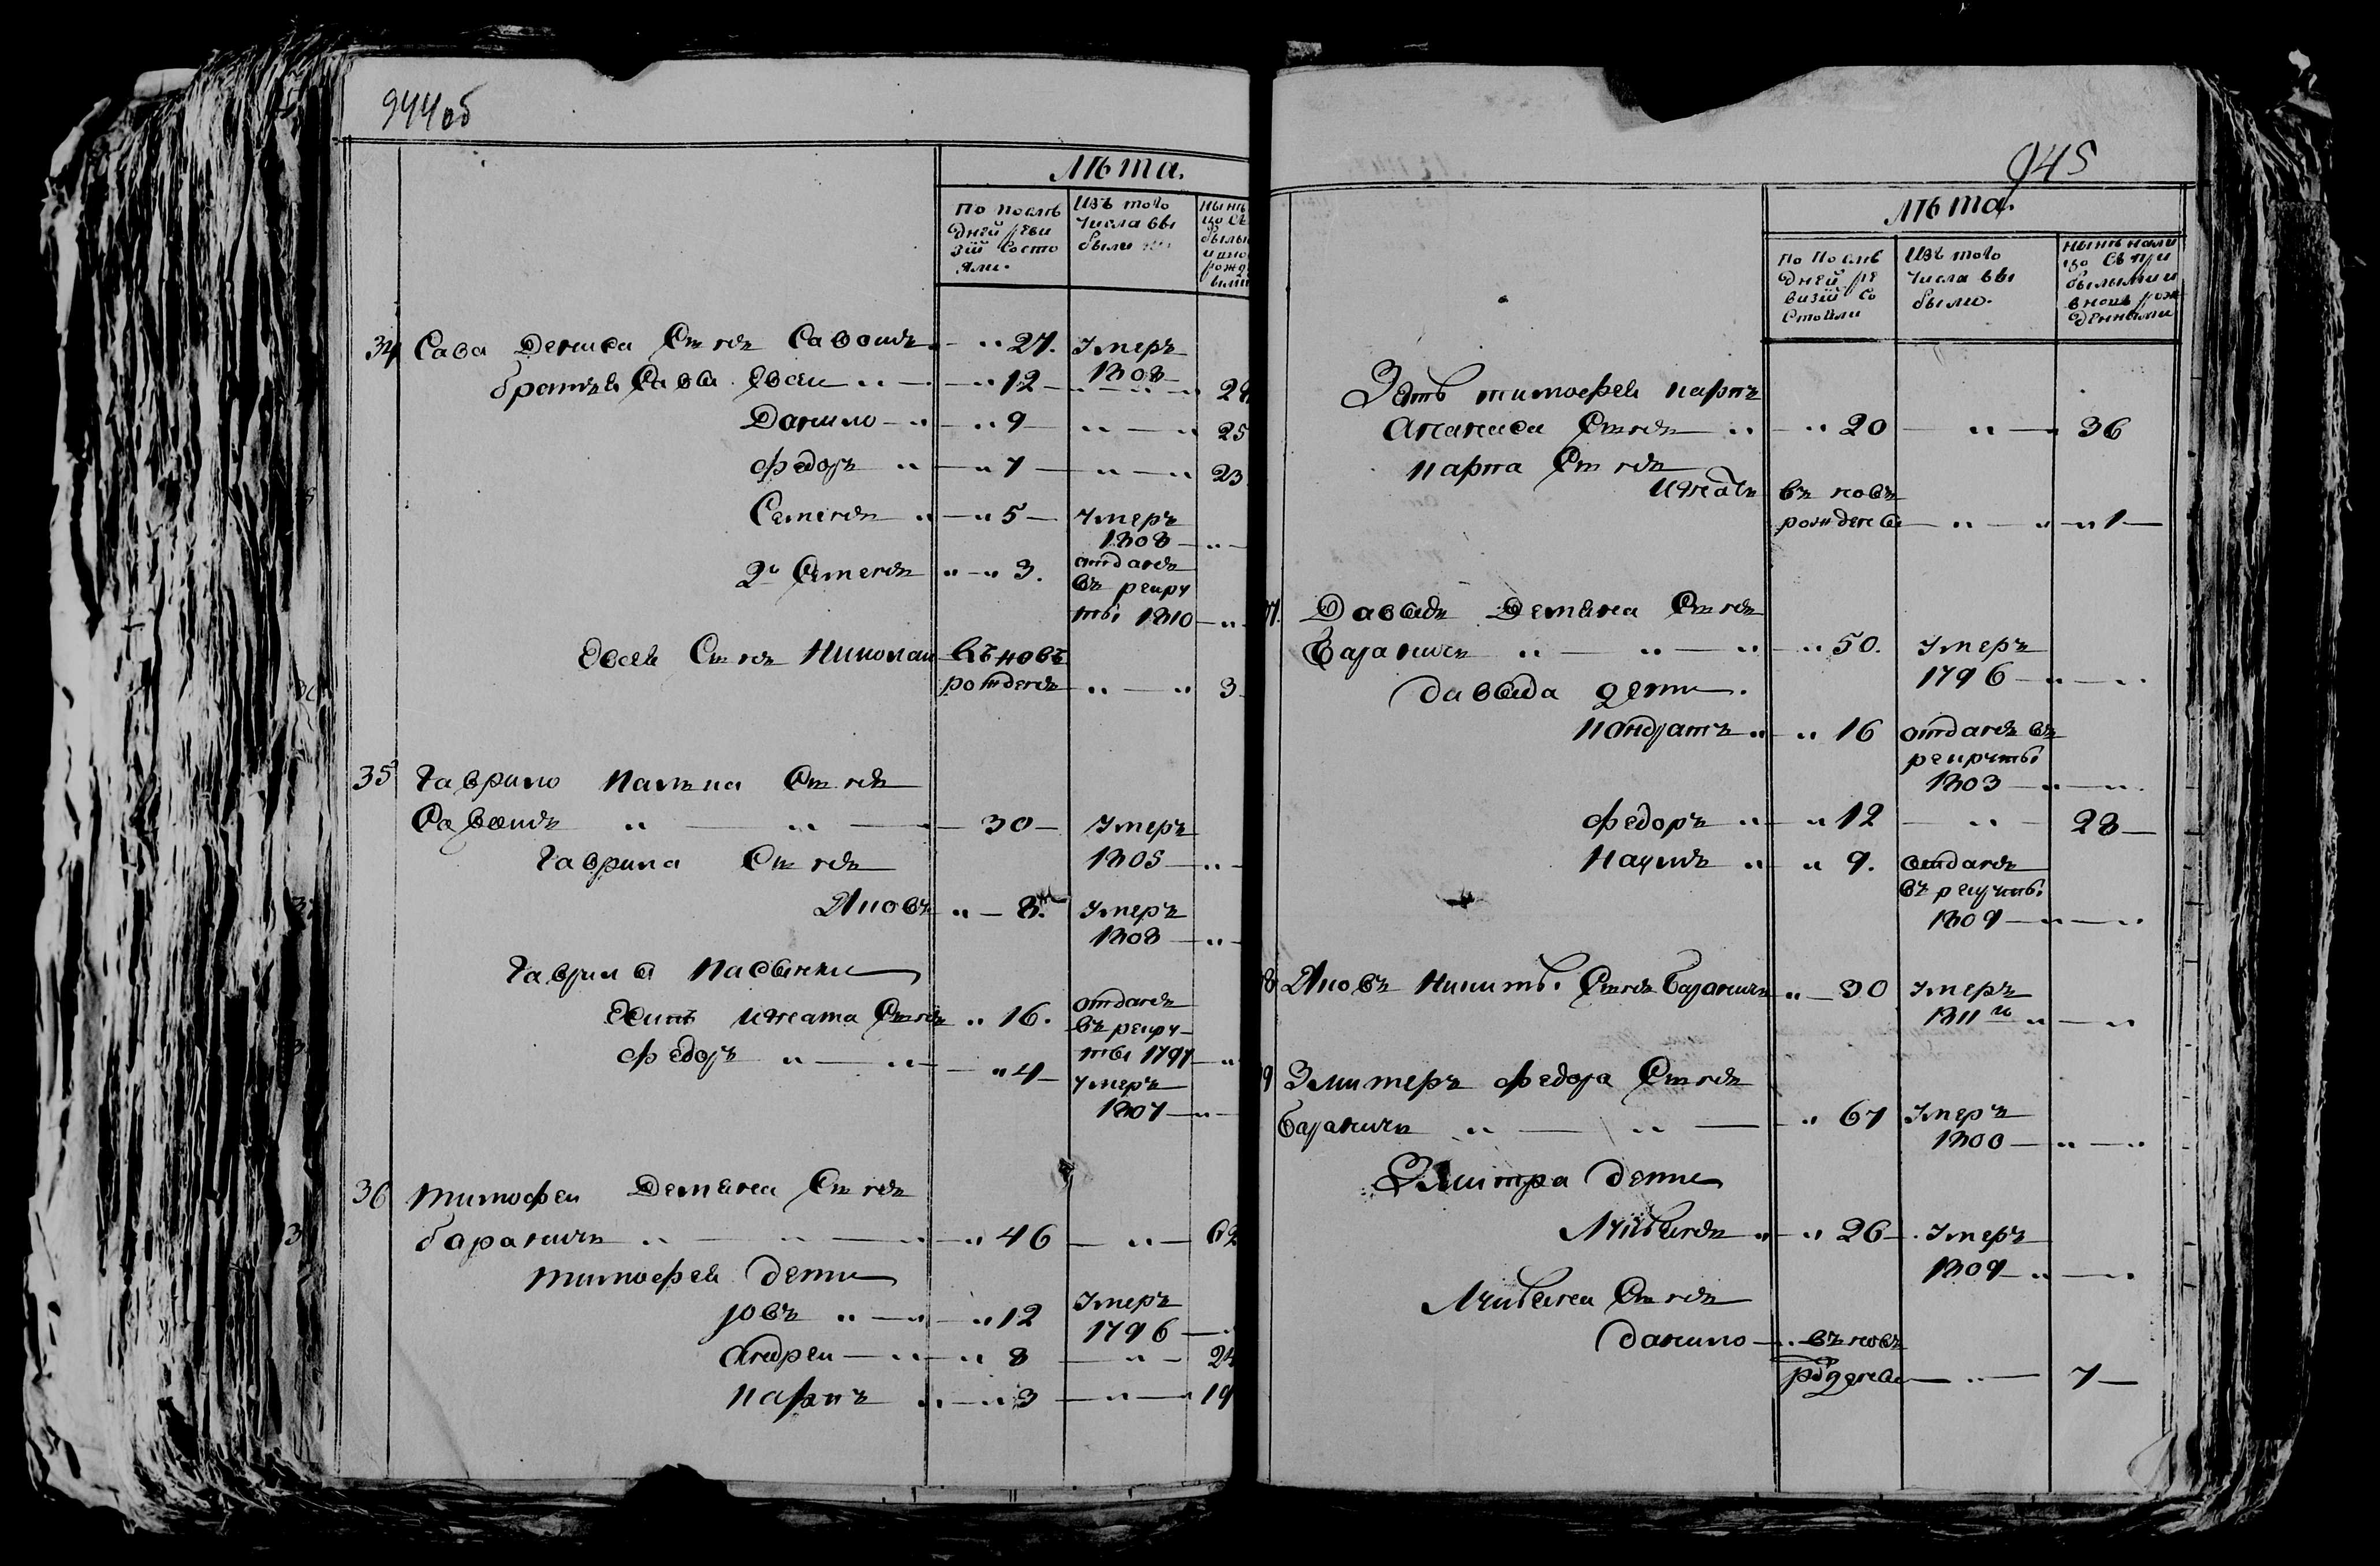 944об
Лѣта.
По послѣ
дней реви
зіи состо
яли.
Изъ того
числа вы
были
34 Сава Дениса Сынъ Савошъ 27. Умеръ
1808
братья Савы Евсей 12 28
Данило 9 25
Федоръ 7 23
Семенъ 5 Умеръ
1808
2й Семенъ 3. отданъ
въ рекру
ты 1810
Евсея Сынъ Николай въ новъ
рожденъ 3
35 Гаврило Сынъ
30 Умеръ
1805
Гаврила Сынъ
Яковъ 8. Умеръ
1808
Гаврилы Пасынки
Игната Сынъ 16. отданъ
въ рекру
ты 1797
Федоръ 4 умеръ
1807
36 Тимофей Демьяна Сынъ
бараничъ 46 62
Тимофея дети
Іовъ 12 Умеръ
1796
Андрей 8 24
Карпъ 3 19
945
Лѣта.
По Послѣ
дней ре
визіи со
стояли
Изъ того
числа вы
было.
нынѣ нали
цо съ при
былыми и
вновь рож
денными
Зять тимофея карпъ
Ананиса Сынъ 20 36
карпа Сынъ
Игнатъ въ новъ
рожденъ 1
Давыдъ Демьяна Сынъ
Бараничъ 50. Умеръ
1796
Давыда дети.
Кондратъ 16 отданъ въ
рекруты
1803
Федоръ 12 28
Наумъ 9. отданъ
въ рекруты
1809
8 Яковъ Никиты Сынъ Бараничъ 30 Умеръ
1811го
9 Змитеръ Федора Сынъ
Бараничъ 67 Умеръ
1800
Змитра дети
Лукьянъ 26 Умеръ
1809
Лукьяна Сынъ
данило въ новъ
рожденъ 7